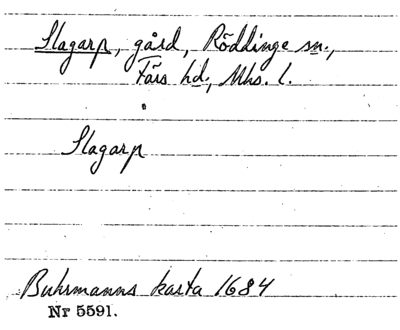 Slagarp, gård, Röddinge sn.,
Färs hd., Mhs. l.
Slagarp
Buhrmanns karta 1684
Nr 5591.